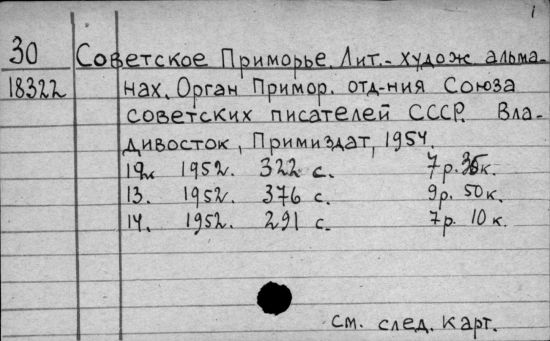 1
30 Советское Приморье. Лит.- худож альма-
18322 нах. Орган Примор. отд-ния Союза
советских писателей СССР. Вла-
дивосток, Примиздат, 1954.
1952. 322 с. 7 р. к.
13. 1952. 376 с. 9р. 50 к.
14. 1952. 291 с. 7р. 10 к.
см. след. карт.